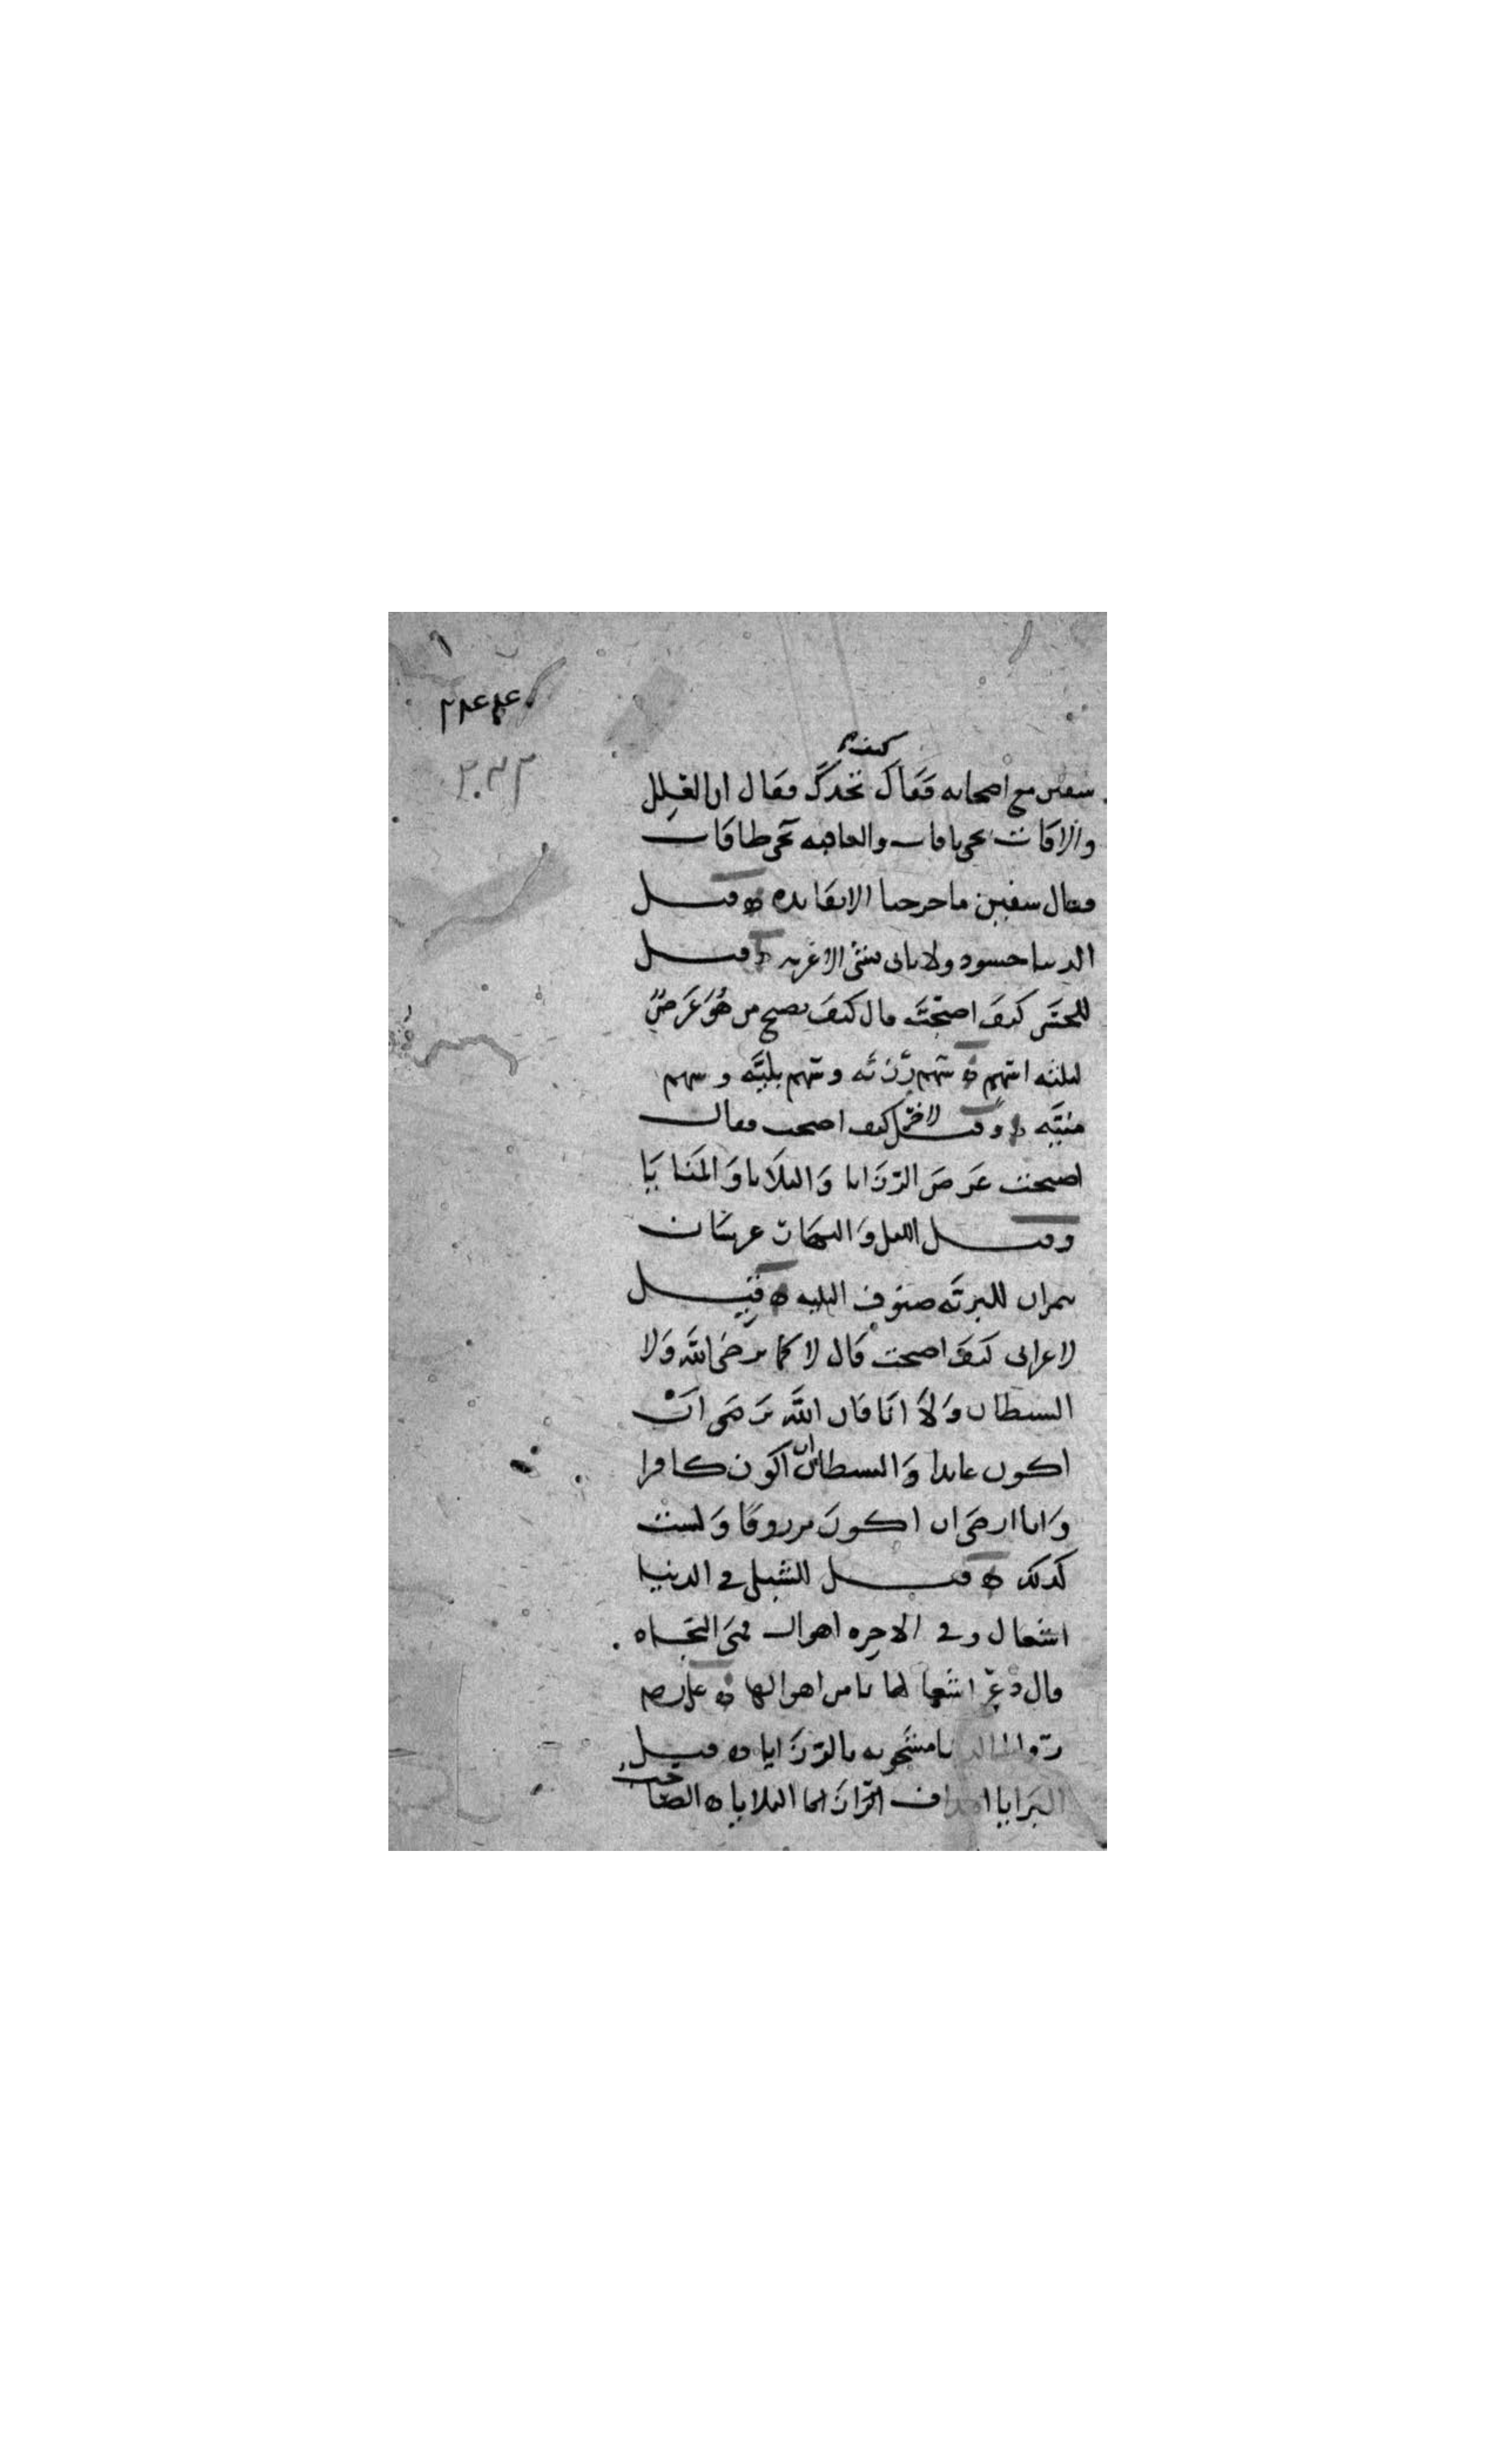 كيف
سفين مع اصحابه فقال تجدك فقال ان العلل
والافات تجي باقات والعافيه تجي طاقات
فقال سفين ما خرجنا الا بفايده ه قيل
الدنيا حسود ولا تاتي على شي الا غيرته ه قيل
للحسن كيف اصبحت قال كيف يصبح من هو غرض
لثلثه اسهم ه سهم رزيه وسهم بليه وسهم
منيه ه وقيل لاخر كيف اصبحت فقال
اصبحت غرض الرزايا والبلايا والمنايا
وقيل الليل والنهار غرسان
يثمران للبريه صنوف البليه ه قيل
لاعرابي كيف اصبحت قال لا كما يرضى الله ولا
الشيطان ولا انا فان الله يرضى ان
اكون عابدا والشيطان ان اكون كافرا
وانا ارضى ان اكون مرزوقا ولست
كذلك ه قيل للشبلي في الدنيا
اشغال وفي الاخره اهوال فمتى النجاه
قال دع اشغالها تامن اهوالها ه علي رضه
مشحونه بالرزايا ه قيل
البرايا اهداف البلايا ه الصاحب